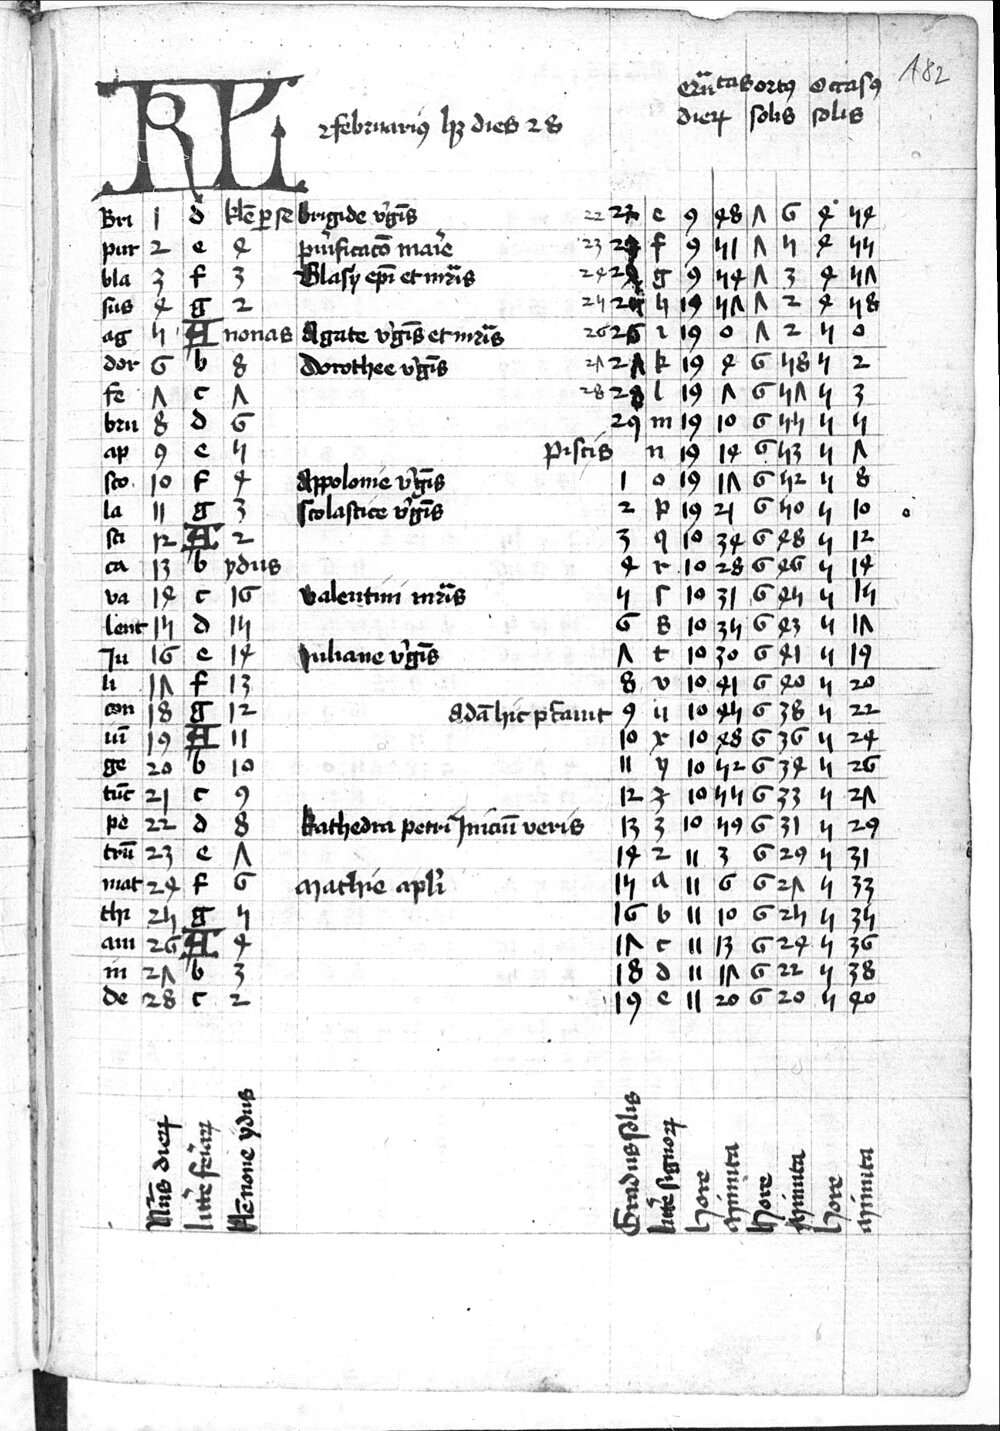 182
KL februariꝰ hꝫ dies 28
dierꝝ ortꝰ solis Occasꝰ solis
Bri 1 d kłe ꝑ se brigide v'gīs 22 e 9 48 7 6 4 54
pur 2 e 4 purificacō marie 23 f 9 51 7 5 4 55
bla 3 f 3 Blasÿ ep̄i et mr̄is 24 g 9 54 7 3 4 57
sus 4 g 2 25 h 19 57 7 2 4 58
ag 5 A nonas Agate v'gīs et mr̄is 26 26 i 19 0 7 2 5 0
dor 6 b 8 dorothee v'gīs 27 27 k 19 4 6 58 5 2
fe 7 c 7 28 28 l 19 7 6 57 5 3
bru 8 d 6 29 m 19 10 6 55 5 5
ap 9 e 5 piscis n 19 14 6 53 5 7
sco 10 f 4 Appolonie v'gīs 1 o 19 17 6 52 5 8
la 11 g 3 scolastice v'gīs 2 p 19 21 6 50 5 10
sti 12 A 2 3 q 10 34 6 48 5 12
ca 13 b ydus 4 r 10 28 6 46 5 14
va 14 c 16 valentini mr̄is 5 ſ 10 31 6 45 5 15
lent 15 d 15 6 s 10 35 6 43 5 17
Ju 16 e 14 Juliane v'gīs 7 t 10 30 6 41 5 19
li 17 f 13 8 v 10 41 6 40 5 20
con 18 g 12 adā hic p̄cauit 9 u 10 45 6 38 5 22
iū 19 A 11 10 x 10 48 6 36 5 24
ge 20 b 10 11 y 10 52 6 34 5 26
tūc 21 c 9 12 z 10 55 6 33 5 27
pe 22 d 8 kathedra petri Iniciū veris 13 3 10 59 6 31 5 29
trū 23 e 7 14 2 11 3 6 29 5 31
mat 24 f 6 mathie apłi 15 a 11 6 6 27 5 33
thi 25 g 5 16 b 11 10 6 25 5 35
am 26 A 4 17 c 11 13 6 24 5 36
in 27 b 3 18 d 11 17 6 22 5 38
de 28 c 2 19 e 11 20 6 20 5 40
Nūs dierꝝ
litt'e feriarꝝ
kłe none ydus
Gradus solis
litt'e signorꝝ
hore
minuta
hore
minuta
hore
minuta